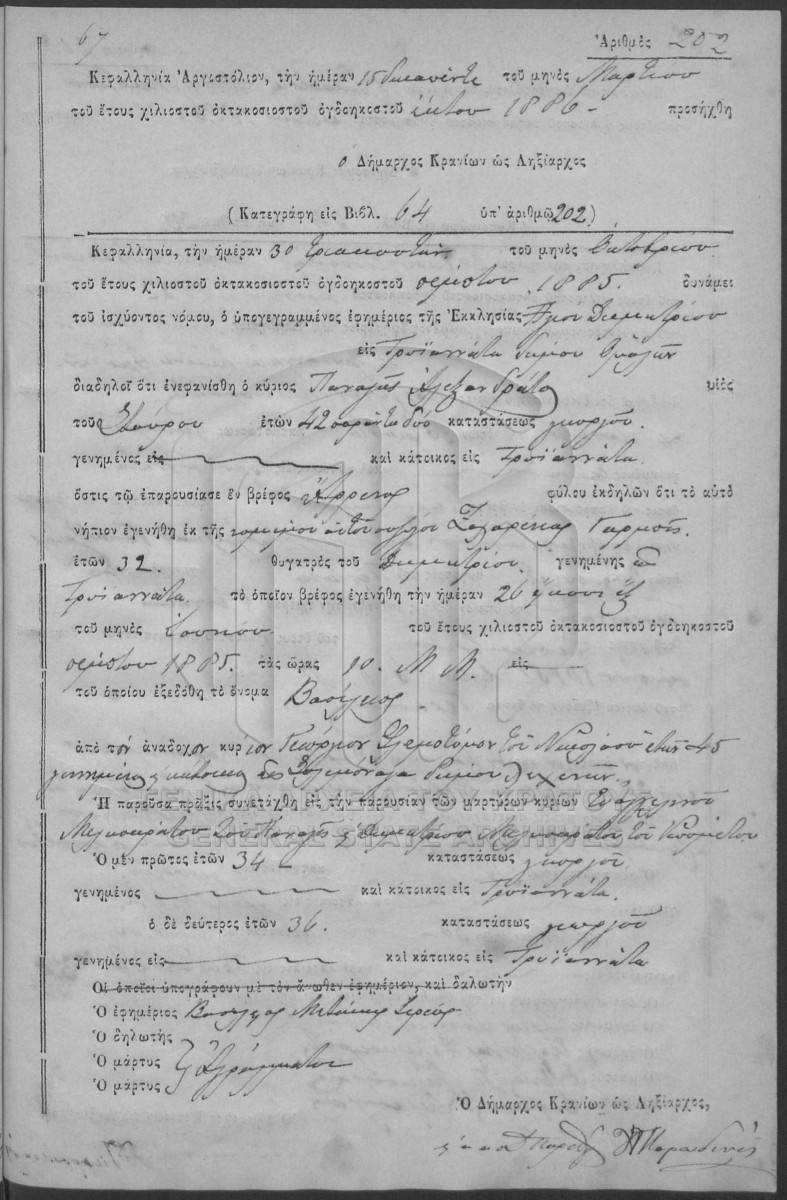 67
Ἀριθμὸς 202
Κεφαλληνία Ἀργοστόλιον, τὴν ἡμέραν 15 δεκαπέντε τοῦ μηνὸς Μαρτίου
τοῦ ἔτους χιλιοστοῦ ὀκτακοσιοστοῦ ὀγδοηκοστοῦ ἕκτου 1886 - προσήχθη
ὁ Δήμαρχος Κρανίων ὡς Ληξίαρχος
(Κατεγράφη εἰς Βιβλ. 64 ὑπ' ἀριθμῷ 202)
Κεφαλληνία, τὴν ἡμέραν 30 τριακοστὴν τοῦ μηνὸς Ὀκτωβρίου
τοῦ ἔτους χιλιοστοῦ ὀκτακοσιοστοῦ ὀγδοηκοστοῦ πέμπτου 1885. δυνάμει
τοῦ ἰσχύοντος νόμου, ὁ ὑπογεγραμμένος ἐφημέριος τῆς Ἐκκλησίας Ἁγίου Δημητρίου
εἰς Τρωϊαννάτα δήμου
διαδηλοῖ ὅτι ἐνεφανίσθη ὁ κύριος Παναγῆς Ἀλεξανδράτος υἱὸς
τοῦ Σπύρου ἐτῶν 42 σαράντα δύο καταστάσεως γεωργοῦ.
γενημένος εἰς καὶ κάτοικος εἰς Τρωϊαννάτα.
ὅστις τῷ ἐπαρουσίασε ἓν βρέφος ἄρρενος φύλου ἐκδηλῶν ὅτι τὸ αὐτὸ
νήπιον ἐγενήθη ἐκ τῆς νομίμου αὐτοῦ συζύγου Ζαχαρένιας
ἐτῶν 32. θυγατρὸς τοῦ Δημητρίου. γενημένης εἰς
Τρωϊαννάτα. τὸ ὁποῖον βρέφος ἐγενήθη τὴν ἡμέραν 26 εἴκοσι ἓξ
τοῦ μηνὸς Ἰουνίου τοῦ ἔτους χιλιοστοῦ ὀκτακοσιοστοῦ ὀγδοηκοστοῦ
πέμπτου 1885. τὰς ὥρας 10. Μ Μ. εἰς
τοῦ ὁποίου ἐξεδόθη τὸ ὄνομα Βασίλειος.
ἀπὸ τὸν ἀνάδοχον κύριον Γεώργιον τοῦ Νικολάου ἐτῶν 45
γεννημένος κάτοικος εἰς δήμου
Ἡ παροῦσα πρᾶξις συνετάχθη εἰς τὴν παρουσίαν τῶν μαρτύρων κυρίων Εὐαγγελινοῦ
τοῦ Παναγῆ Δημητρίου τοῦ
Ὁ μὲν πρῶτος ἐτῶν 34 καταστάσεως γεωργοῦ
γενημένος καὶ κάτοικος εἰς Τρωϊαννάτα.
ὁ δὲ δεύτερος ἐτῶν 36. καταστάσεως γεωργοῦ
γενημένος εἰς καὶ κάτοικος εἰς Τρωϊαννάτα
Οἱ ὁποῖοι ὑπογράφουν μὲ τὸν ἄνωθεν ἐφημέριον, καὶ δαλωτήν
Ὁ ἐφημέριος Βασίλειος Ἱερεύς
Ὁ δηλωτὴς
Ὁ μάρτυς Ἀγράμματοι
Ὁ μάρτυς
Ὁ Δήμαρχος Κρανίων ὡς Ληξίαρχος,
GENERAL STATE ARCHIVES